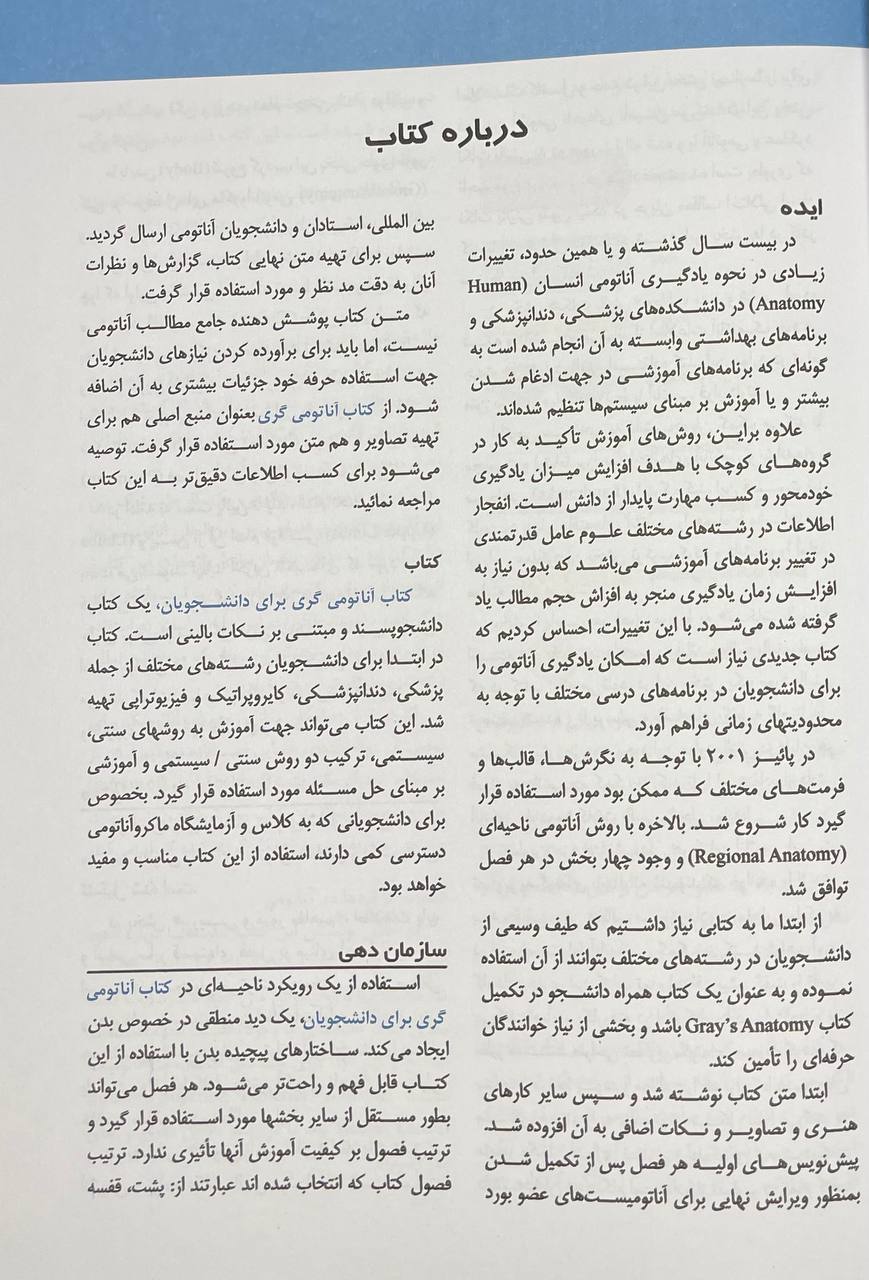 درباره کتاب
ایده
در بیست سال گذشته و یا همین حدود، تغییرات
زیادی در نحوه یادگیری آناتومی انسان (Human
Anatomy) در دانشکده‌های پزشکی، دندانپزشکی و
برنامه‌های بهداشتی وابسته به آن انجام شده است به
گونه‌ای که برنامه‌های آموزشی در جهت ادغام شدن
بیشتر و یا آموزش بر مبنای سیستم‌ها تنظیم شده‌اند.
علاوه براین، روش‌های آموزش تأکید به کار در
گروه‌های کوچک با هدف افزایش میزان یادگیری
خودمحور و کسب مهارت پایدار از دانش است. انفجار
اطلاعات در رشته‌های مختلف علوم عامل قدرتمندی
در تغییر برنامه‌های آموزشی می‌باشد که بدون نیاز به
افزایش زمان یادگیری منجر به افزاش حجم مطالب یاد
گرفته شده می‌شود. با این تغییرات، احساس کردیم که
کتاب جدیدی نیاز است که امکان یادگیری آناتومی را
برای دانشجویان در برنامه‌های درسی مختلف با توجه به
محدودیتهای زمانی فراهم آورد.
در پائیز ۲۰۰۱ با توجه به نگرش‌ها، قالب‌ها و
فرمت‌های مختلف که ممکن بود مورد استفاده قرار
گیرد کار شروع شد. بالاخره با روش آناتومی ناحیه‌ای
(Regional Anatomy) و وجود چهار بخش در هر فصل
توافق شد.
از ابتدا ما به کتابی نیاز داشتیم که طیف وسیعی از
دانشجویان در رشته‌های مختلف بتوانند از آن استفاده
نموده و به عنوان یک کتاب همراه دانشجو در تکمیل
کتاب Gray’s Anatomy باشد و بخشی از نیاز خوانندگان
حرفه‌ای را تأمین کند.
ابتدا متن کتاب نوشته شد و سپس سایر کارهای
هنری و تصاویر و نکات اضافی به آن افزوده شد.
پیش‌نویس‌های اولیه هر فصل پس از تکمیل شدن
بمنظور ویرایش نهایی برای آناتومیست‌های عضو بورد
بین المللی، استادان و دانشجویان آناتومی ارسال گردید.
سپس برای تهیه متن نهایی کتاب، گزارش‌ها و نظرات
آنان به دقت مد نظر و مورد استفاده قرار گرفت.
متن کتاب پوشش دهنده جامع مطالب آناتومی
نیست، اما باید برای برآورده کردن نیازهای دانشجویان
جهت استفاده حرفه خود جزئیات بیشتری به آن اضافه
شود. از کتاب آناتومی گری بعنوان منبع اصلی هم برای
تهیه تصاویر و هم متن مورد استفاده قرار گرفت. توصیه
می‌شود برای کسب اطلاعات دقیق‌تر به این کتاب
مراجعه نمائید.
کتاب
کتاب آناتومی گری برای دانشجویان، یک کتاب
دانشجوپسند و مبتنی بر نکات بالینی است. کتاب
در ابتدا برای دانشجویان رشته‌های مختلف از جمله
پزشکی، دندانپزشکی، کایروپراتیک و فیزیوتراپی تهیه
شد. این کتاب می‌تواند جهت آموزش به روشهای سنتی،
سیستمی، ترکیب دو روش سنتی / سیستمی و آموزشی
بر مبنای حل مسئله مورد استفاده قرار گیرد. بخصوص
برای دانشجویانی که به کلاس و آزمایشگاه ماکروآناتومی
دسترسی کمی دارند، استفاده از این کتاب مناسب و مفید
خواهد بود.
سازمان دهی
استفاده از یک رویکرد ناحیه‌ای در کتاب آناتومی
گری برای دانشجویان، یک دید منطقی در خصوص بدن
ایجاد می‌کند. ساختارهای پیچیده بدن با استفاده از این
کتاب قابل فهم و راحت‌تر می‌شود. هر فصل می‌تواند
بطور مستقل از سایر بخشها مورد استفاده قرار گیرد و
ترتیب فصول بر کیفیت آموزش آنها تأثیری ندارد. ترتیب
فصول کتاب که انتخاب شده اند عبارتند از: پشت، قفسه